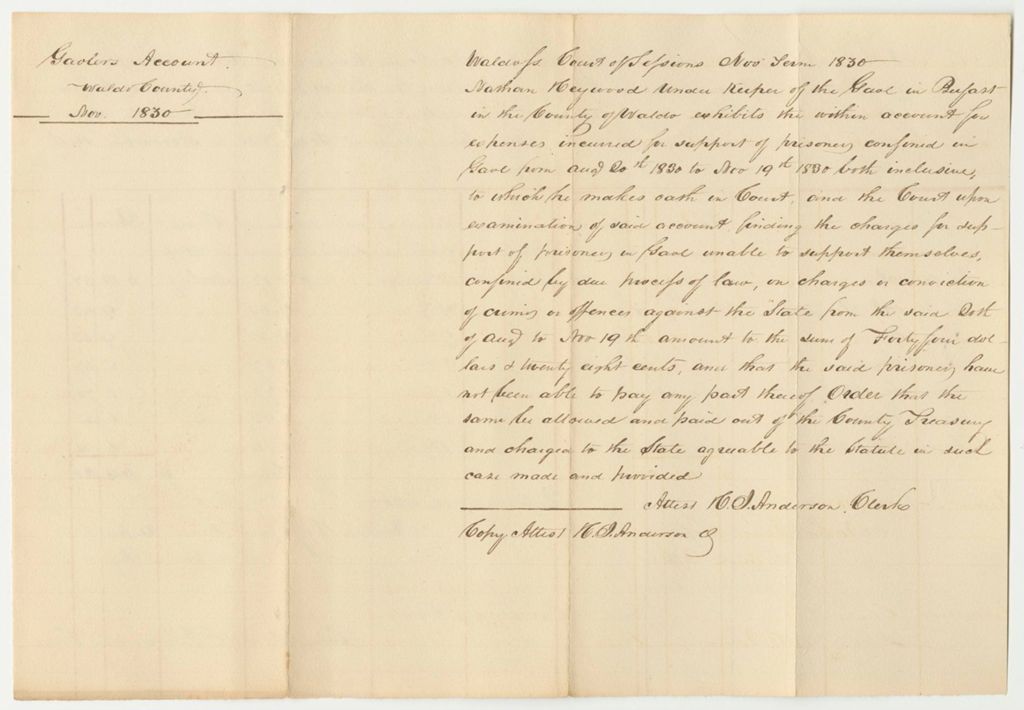 Gaolers Account.
Waldo County.
Nov. 1830
Waldo ss. Court of Sessions Nov Term 1830
Nathan Heywood under keeper of the Gaol in Belfast
in the County of Waldo exhibits the within account for
expenses incurred for support of prisoners confined in
Gaol from Augt 20th 1830 to Nov 19th 1830 both inclusive,
to which he makes oath in Court, and the Court upon
examination of said account, finding the charges for sup-
port of prisoners in Gaol unable to support themselves,
confined by due process of law, on charges or conviction
of crimes or offences against the State from the said 20th
of Augt to Nov 19th amount to the sum of Forty four dol-
lars & twenty eight cents, and that the said prisoners have
not been able to pay any part thereof Order that the
same be allowed and paid out of the County Treasury
and charged to the State agreeable to the Statute in such
case made and provided
Attest H. J. Anderson, Clerk
Copy Attest H. J. Anderson C